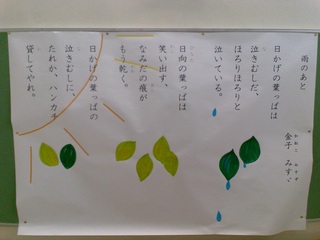 雨のあと
金子 みすゞ
かねこ みすず
日かげの葉っぱは
泣きむしだ、
ほろりほろりと
泣いている。
日向の葉っぱは
笑い出す、
なみだの痕が
もう乾く。
日かげの葉っぱの
泣きむしに、
たれか、ハンカチ
貸してやれ。